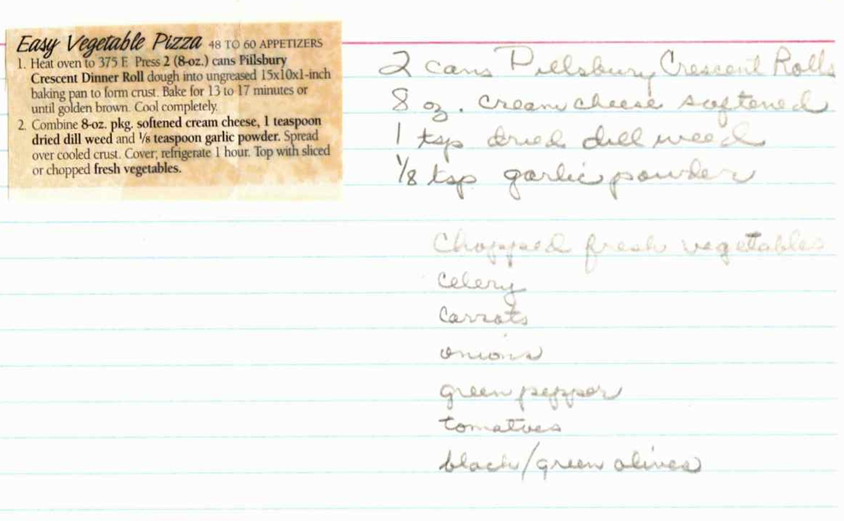 Easy Vegetable Pizza 48 TO 60 APPETIZERS
1. Heat oven to 375 F. Press 2 (8-oz.) cans Pillsbury
Crescent Dinner Roll dough into ungreased 15x10x1-inch
baking pan to form crust. Bake for 13 to 17 minutes or
until golden brown. Cool completely.
2. Combine 8-oz. pkg. softened cream cheese, 1 teaspoon
dried dill weed and 1/8 teaspoon garlic powder. Spread
over cooled crust. Cover; refrigerate 1 hour. Top with sliced
or chopped fresh vegetables.
2 cans Pillsbury Crescent Rolls
8 oz. cream cheese softened
1 tsp dried dill weed
1/8 tsp garlic powder
Chopped fresh vegetables
celery
carrots
onions
green pepper
tomatoes
black/green olives